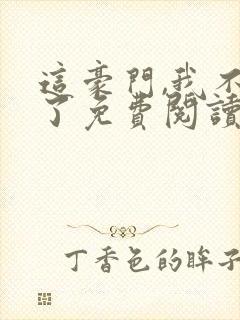 這豪門,我不
了免費閱讀
丁香色的眸子